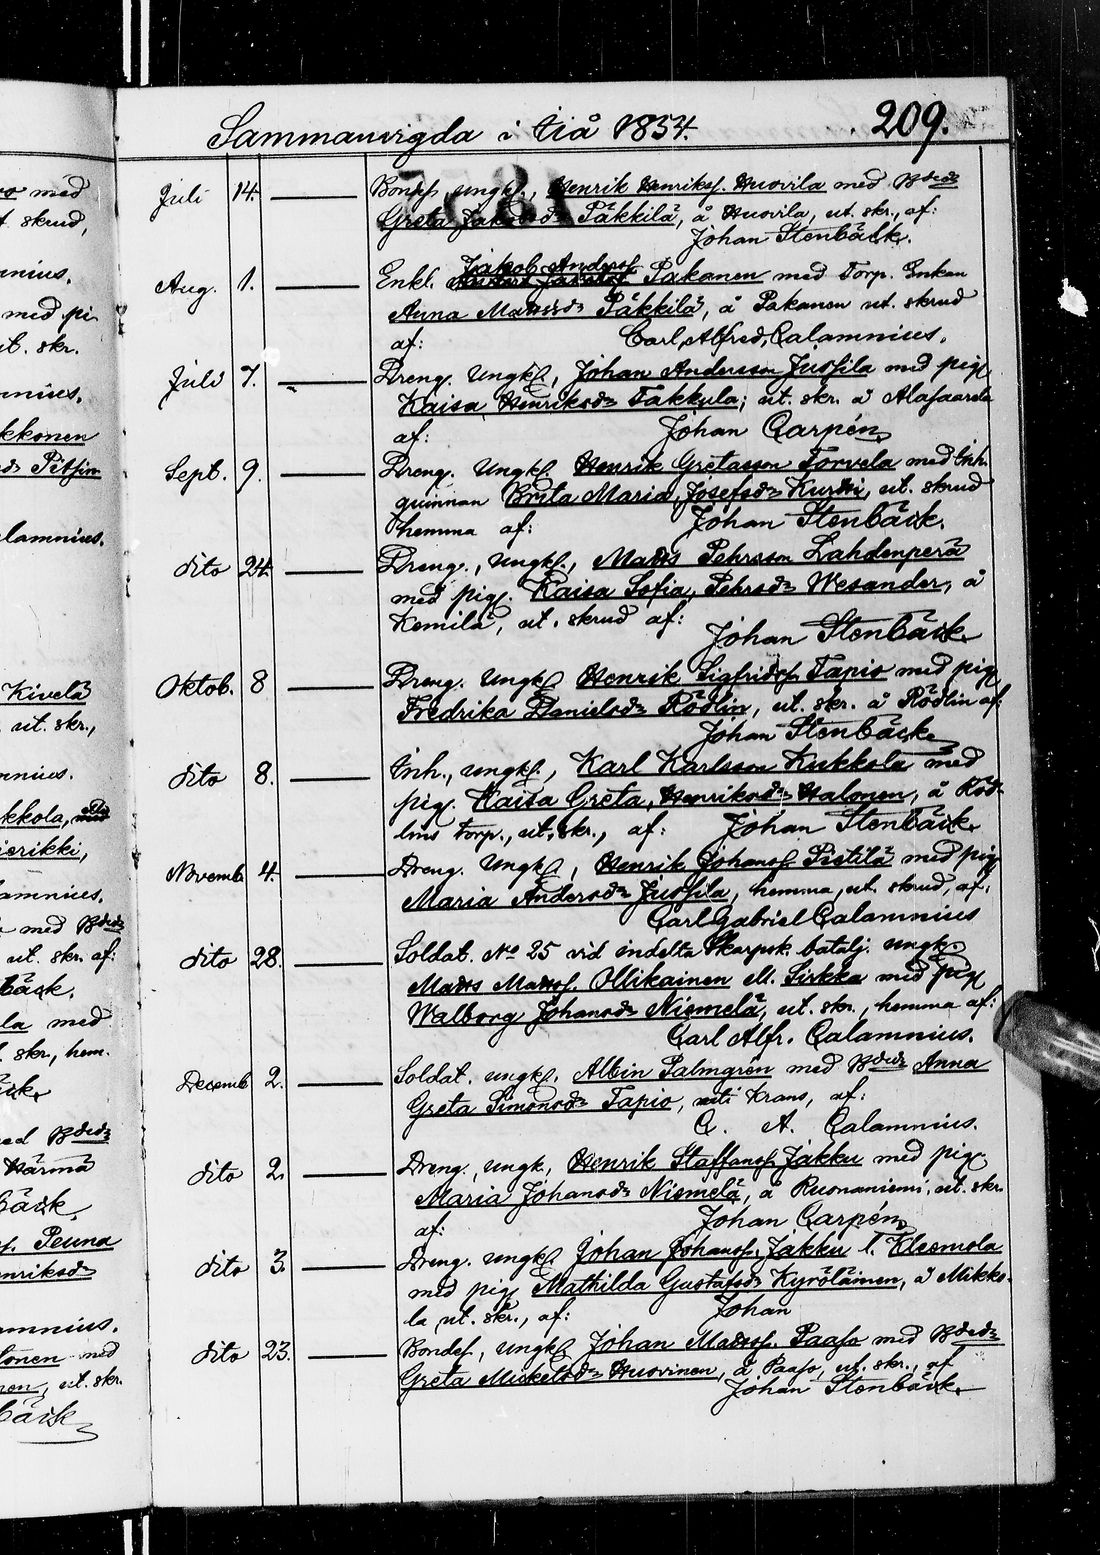 209.
Sammanvigda i Uiå 1854.
Juli 14. Bondes, ungk., Henrik Henrikss. Huovila med Bdedr
Greta Jakobsdr Päkkilä, å Huovila, ut. skr., af:
Johan Stenbäck.
Aug. 1. Enkl. Jakob Anderss. Pakanen med Torp. Enkan
Anna Mattsdr Päkkilä, å Pakanen ut. skrud
af: Carl Alfred Calamnius.
Juli 7. Dreng. Ungk., Johan Andersson Jussila med pig.
Kaisa Henriksdr Takkula; ut. skr. å Alasaarela
af: Johan Carpén
Sept. 9. Dreng. Ungk. Henrik Gretasson Torvela med Inh.
quinnan Brita Maria Josefsdr Kurki, ut. skrud
hemma af: Johan Stenbäck.
dito 24. Dreng., Ungk., Matts Pehrsson Lahdenperä
med pig. Kaisa Sofia Pehrsdr Wesander, å
Kemilä, ut. skrud af:
Johan Stenbäck
Oktob. 8 Dreng. Ungk. Henrik Sigfridss. Tapio med pig
Fredrika Danielsdr Rödlin, ut. skr. å Rödlin af:
Johan Stenbäck
dito 8. Inh., ungk., Karl Karlsson Kukkola med
pig. Kaisa Greta Henriksdr Halonen, å Röd-
lins Torp., ut. skr., af: Johan Stenbäck
Novemb 4. Dreng. Ungk., Henrik Johanss. Pietilä med pig
Maria Andersdr Jussila, hemma, ut. skrud, af.
Carl Gabriel Calamnius
dito 28. Soldat. No 25 vid indelta Skarpsk. batalj. ungk.
Matts Mattss. Ollikainen M. Sirkka med pig
Walborg Johansdr Niemelä, ut. skr., hemma af:
Carl Alfr. Calamnius.
Decemb 2. Soldat. ungk. Albin Palmgrén med Bdedr Anna
Greta Simonsdr Tapio, uti Krans, af:
C. A. Calamnius.
dito 2. Dreng., ungk, Henrik Staffanss. Jakku med pig.
Maria Johansdr Niemelä, å Ruonaniemi, ut. skr.
af: Johan Carpén
dito 3. Dreng. ungk Johan Johanss. Jakku l. Kleemola
med pig Mathilda Gustafsdr Kyröläinen, å Mikko-
la ut. skr., af: Johan
dito 23. Bondes, ungk Johan Mattss. Paaso med Bdedr
Greta Mickelsdr Huovinen, å Paaso, ut. skr., af
Johan Stenbäck